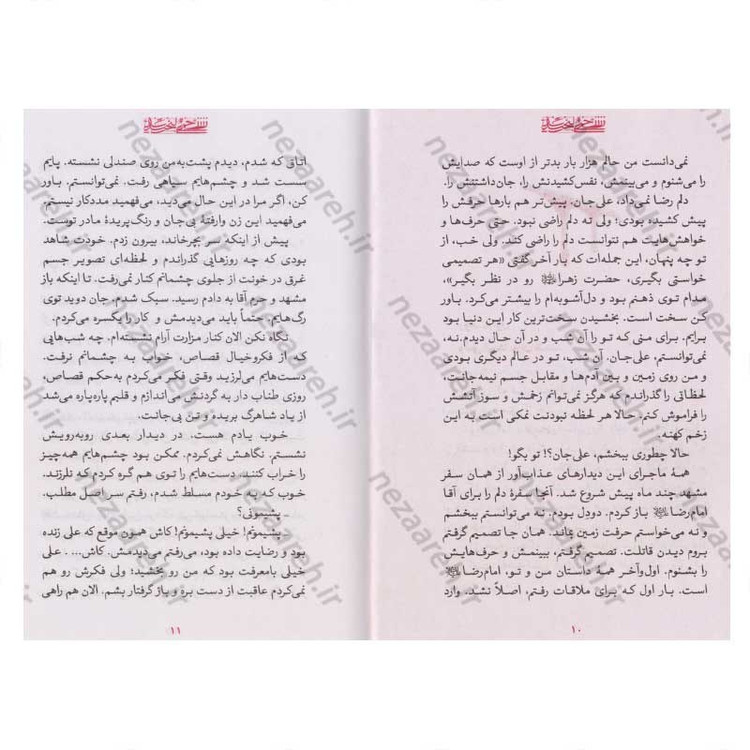 نمی‌دانست من حالم هزار بار بدتر از اوست که صدایش
را می‌شنوم و می‌بینمش، نفس‌کشیدنش را، جان‌داشتنش را.
دلم رضا نمی‌داد، علی‌جان. پیش‌تر هم بارها حرفش را
پیش کشیده بودی؛ ولی ته دلم راضی نبود. حتی حرف‌ها و
خواهش‌هایت هم نتوانست دلم را راضی کند. ولی خب، از
تو چه پنهان، این جمله‌ات که بار آخر گفتی «هر تصمیمی
خواستی بگیری، حضرت زهراﷺ رو در نظر بگیر»،
مدام توی ذهنم بود و دل‌آشوبه‌ام را بیشتر می‌کرد. باور
کن سخت است. بخشیدن سخت‌ترین کار این دنیا بود
برایم. برای منی که تو را آن شب و در آن حال دیدم. نه،
نمی‌توانستم، علی‌جان. آن شب، تو در عالم دیگری بودی
و من روی زمین و بین آدم‌ها و مقابل جسم نیمه‌جانت،
لحظاتی را گذراندم که هرگز نمی‌توانم زخمش و سوز آتشش
را فراموش کنم. حالا هر لحظه نبودنت نمکی است به این
زخم کهنه.
حالا چطوری ببخشم، علی‌جان؟! تو بگو!
همهٔ ماجرای این دیدارهای عذاب‌آور از همان سفر
مشهد چند ماه پیش شروع شد. آنجا سفرهٔ دلم را برای آقا
امام‌رضا باز کردم. دودل بودم. نه می‌توانستم ببخشم
و نه می‌خواستم حرفت زمین بماند. همان جا تصمیم گرفتم
بروم دیدن قاتلت. تصمیم گرفتم، ببینمش و حرف‌هایش
را بشنوم. اول‌وآخر همهٔ داستان من و تو، امام‌رضا
است. بار اول که برای ملاقات رفتم، اصلاً نشد. وارد
۱۰
اتاق که شدم، دیدم پشت‌به‌من روی صندلی نشسته. پایم
سست شد و چشم‌هایم سیاهی رفت. نمی‌توانستم. باور
کن، اگر مرا در این حال می‌دید، می‌فهمید مددکار نیستم.
می‌فهمید این زن وارفتهٔ بی‌جان و رنگ‌پریدهٔ مادر توست.
پیش از اینکه سر بچرخاند، بیرون زدم. خودت شاهد
بودی که چه روزهایی گذراندم و لحظه‌ای تصویر جسم
غرق در خونت از جلوی چشمانم کنار نمی‌رفت. تا اینکه باز
مشهد و حرم آقا به دادم رسید. سبک شدم. جان دوید توی
رگ‌هایم. حتماً باید می‌دیدمش و کار را یکسره می‌کردم.
نگاه نکن الان کنار مزارت آرام نشسته‌ام. چه شب‌هایی
که از فکروخیال قصاص، خواب به چشمانم نرفت.
دست‌هایم می‌لرزید وقتی فکر می‌کردم به‌حکم قصاص،
روزی طناب دار به گردنش می‌اندازم و قلبم پاره‌پاره می‌شد
از یاد شاهرگ بریده و تن بی‌جانت.
خوب یادم هست. در دیدار بعدی روبه‌رویش
نشستم. نگاهش نمی‌کردم. ممکن بود چشم‌هایم همه‌چیز
را خراب کنند. دست‌هایم را توی هم گره کردم که نلرزند.
خوب که به خودم مسلط شدم، رفتم سر اصل مطلب.
ـ پشیمونی؟
ـ پشیمونم! خیلی پشیمونم! کاش همون موقع که علی زنده
بود و رضایت داده بود، می‌رفتم می‌دیدمش. کاش... . علی
خیلی بامعرفت بود که من رو بخشید؛ ولی فکرش رو هم
نمی‌کردم عاقبت از دست بره و باز گرفتار بشم. الان هم راهی
۱۱
nezaareh.ir